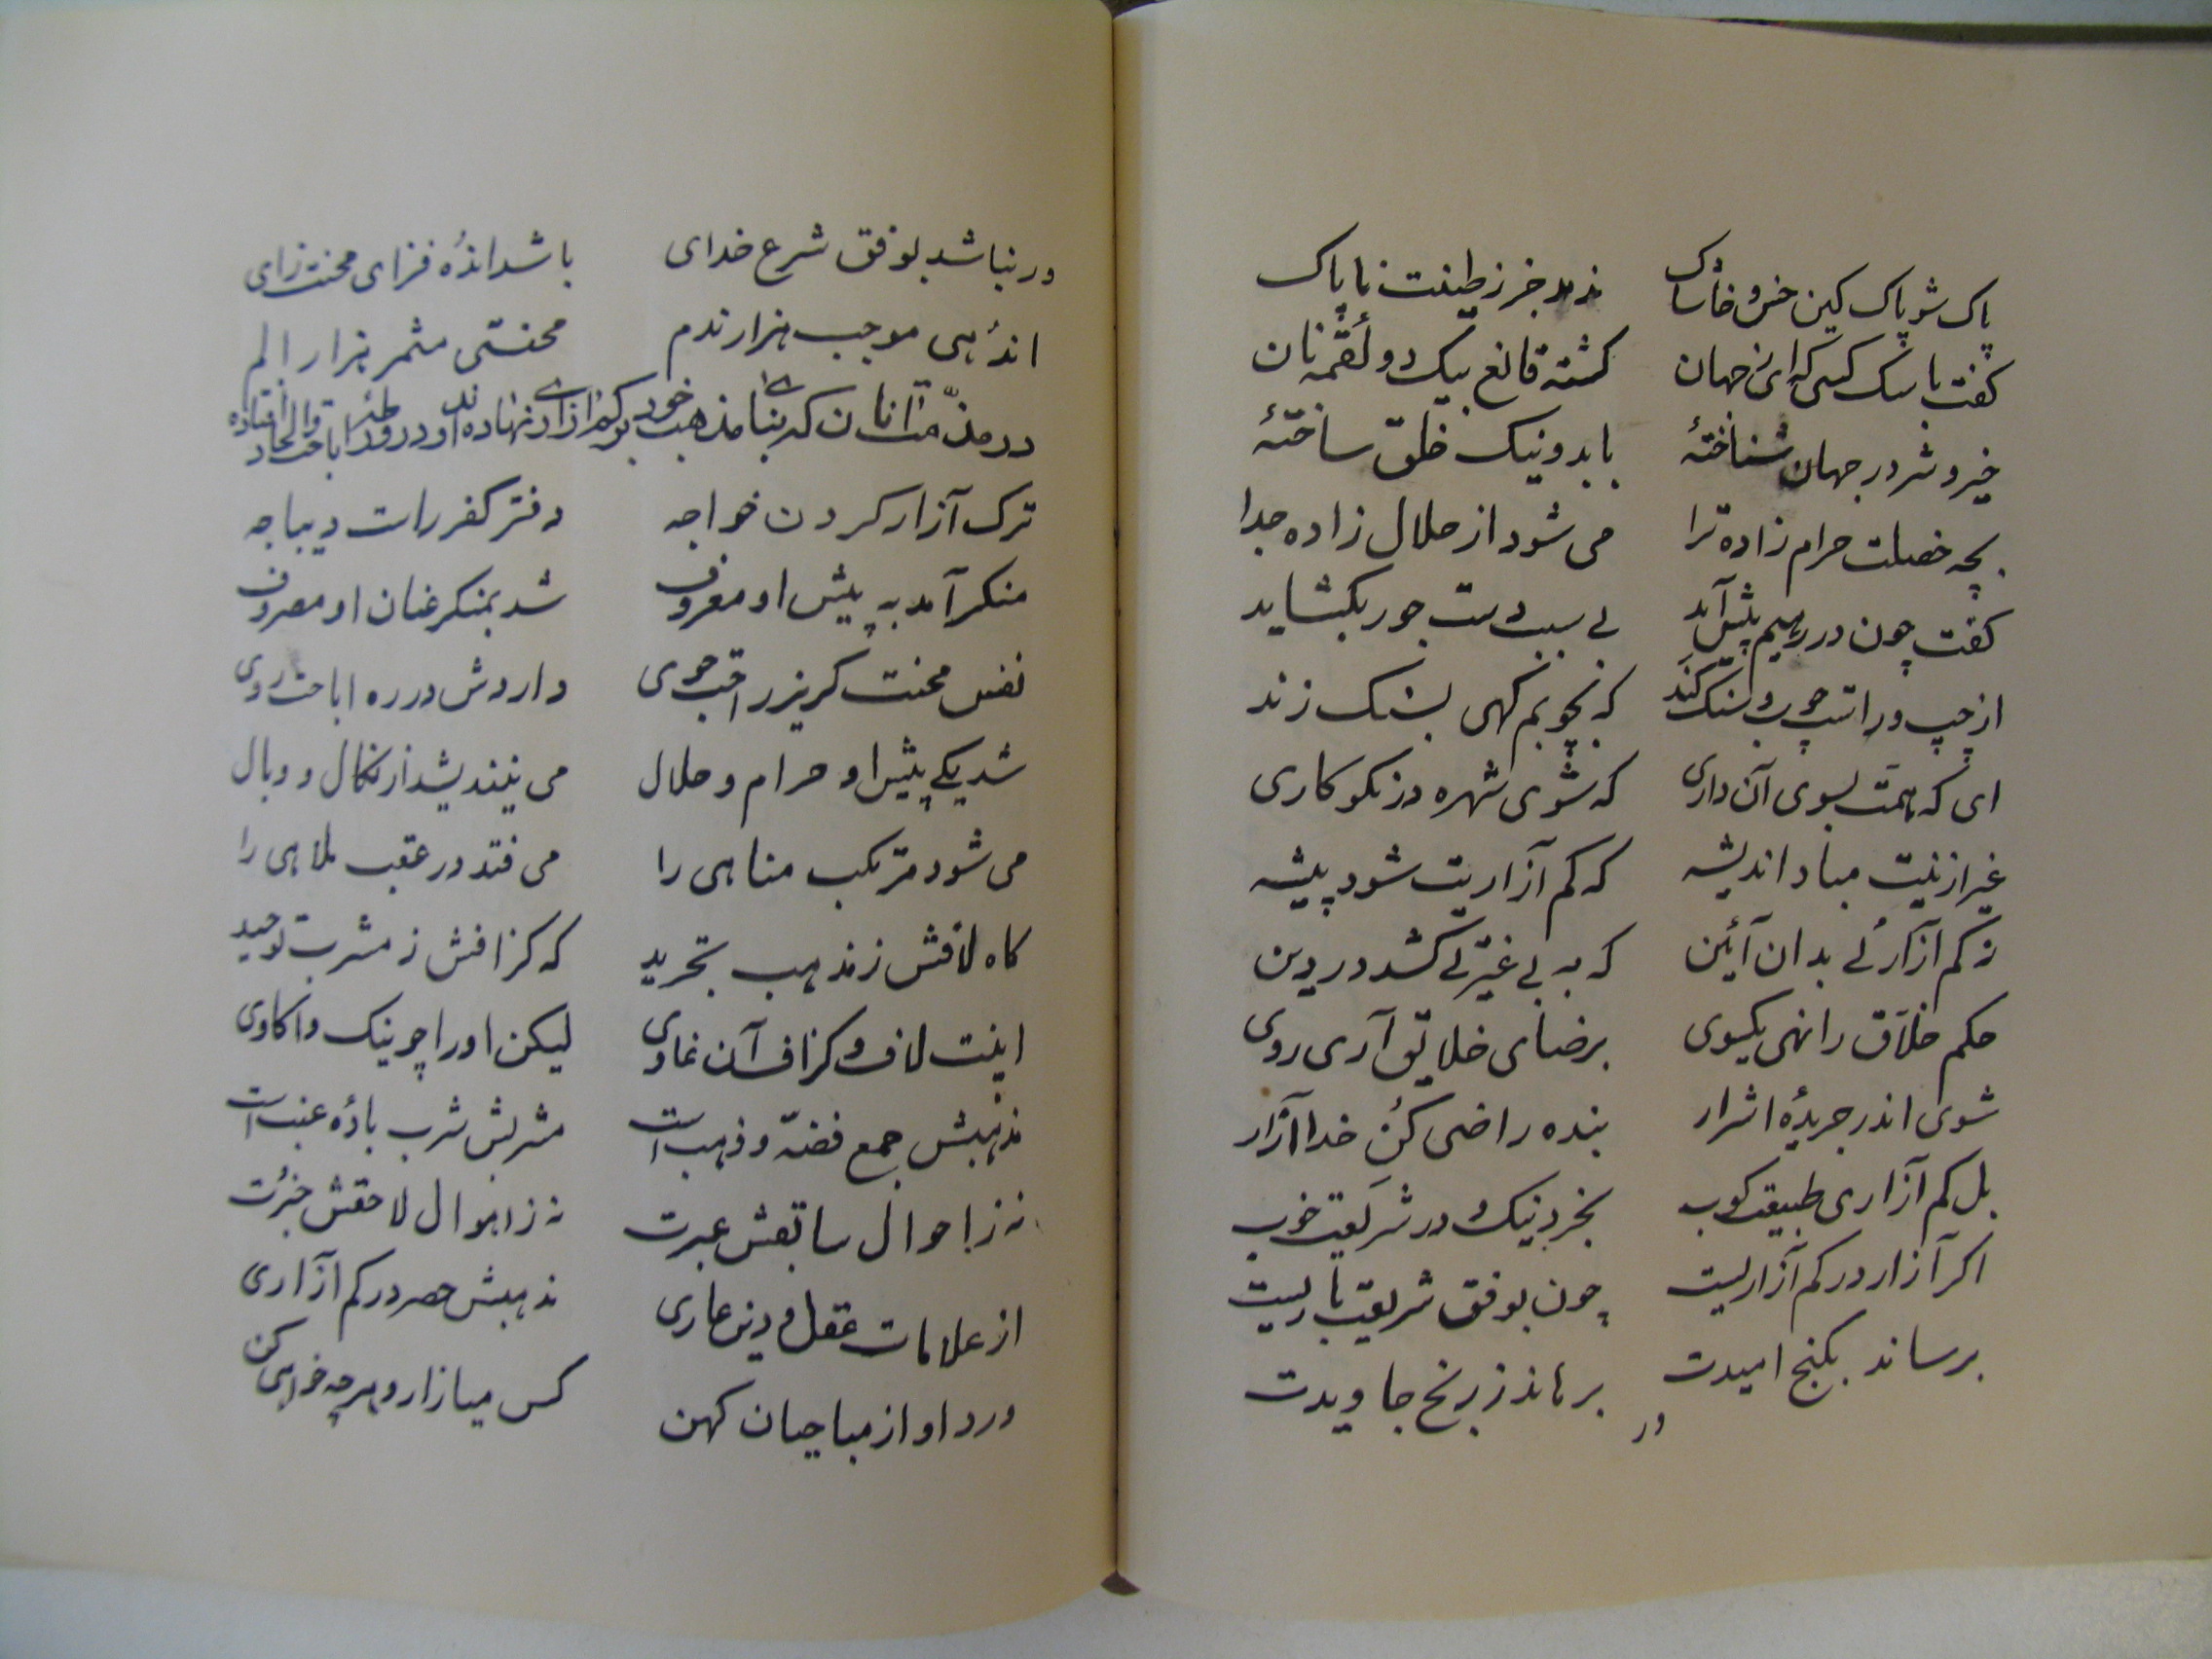 پاک شو پاک کین خس و خاشاک ندمد جز ز طینت ناپاک
گفت با سگ کسی که ای ز جهان گشته قانع بیک دو لقمه نان
خیر و شر در جهان شناختهٔ با بد و نیک خلق ساختهٔ
بچه خصلت حرام زاده ترا می شود از حلال زاده جدا
گفت چون در رهیم پیش آید بی سبب دست جور بگشاید
از چپ و راست چوب و سنگ کند که بچوبم گهی بسنگ زند
ای که همت بسوی آن داری که شوی شهره در نکوکاری
غیر ازینیت مباد اندیشه که کم آزاریت شود پیشه
نه کم آزاریی بدان آئین که به بی غیرتی کشد در دین
حکم خلاق را نهی یکسوی برضای خلایق آری روی
شوی اندر جریدهٔ اشرار بنده راضی کن خدا آزار
بل کم آزاری طبیعت کوب بخرد نیک و در شریعت خوب
اکر آزار در کم آزاریست چون بوفق شریعت باریست
برساند بکنج امیدت برهاند ز رنج جاویدت
ور
ور نباشد بوفق شرع خدای باشد اندُه فزای محنت زای
اندُهی موجب هزار ندم محنتی مثمر هزار الم
در مذمت آنان که بنای مذهب خود بر کم آزاری نهاده اند و در ورطه اباحت و الحاد افتاده
ترک آزار کردن خواجه دفتر کفر راست دیباجه
منکر آمد به پیش او معروف شد بمنکر عنان او مصروف
نفس محنت کریز راحت جوی داردش در ره اباحت روی
شد یکی پیش او حرام و حلال می نیندیشد از نکال و وبال
می شود مرتکب مناهی را می فتد در عقب ملاهی را
کاه لافش ز مذهب تجرید که کزافش ز مشرب توحید
اینت لاف و کزاف آن غاوی لیکن او را چو نیک واکاوی
مذهبش جمع فضّه و ذهب است مشربش شرب بادهٔ عنب است
نه ز احوال سابقش عبرت نه ز اهوال لاحقش خبرت
از علامات عقل و دین عاری مذهبش حصر در کم آزاری
ورد او از مباحیان کهن کس میازار و هر چه خواهی کن